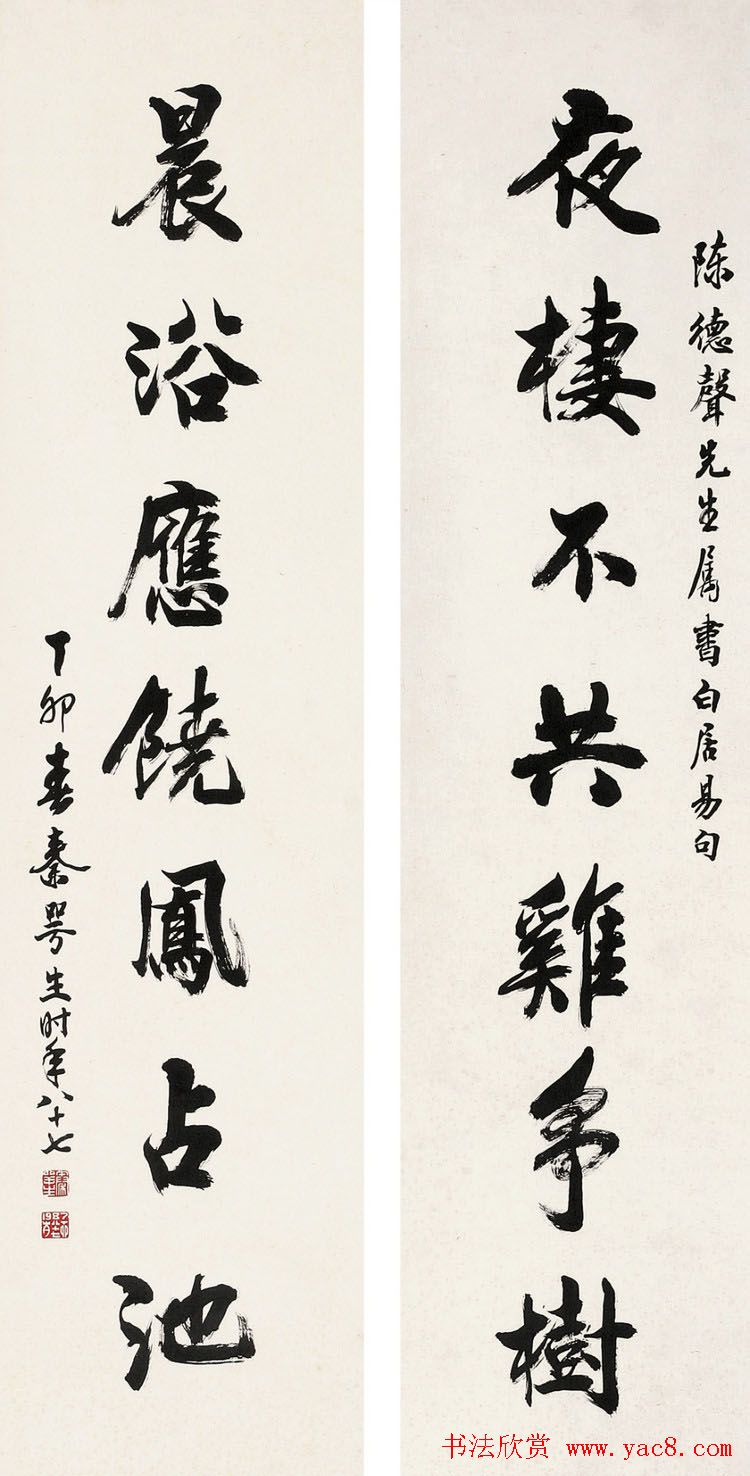 陈德聲先生属書白居易句
夜棲不共雞爭樹
晨浴應饒鳳占池
丁卯春秦咢生时年八十七
书法欣赏 www.yac8.com